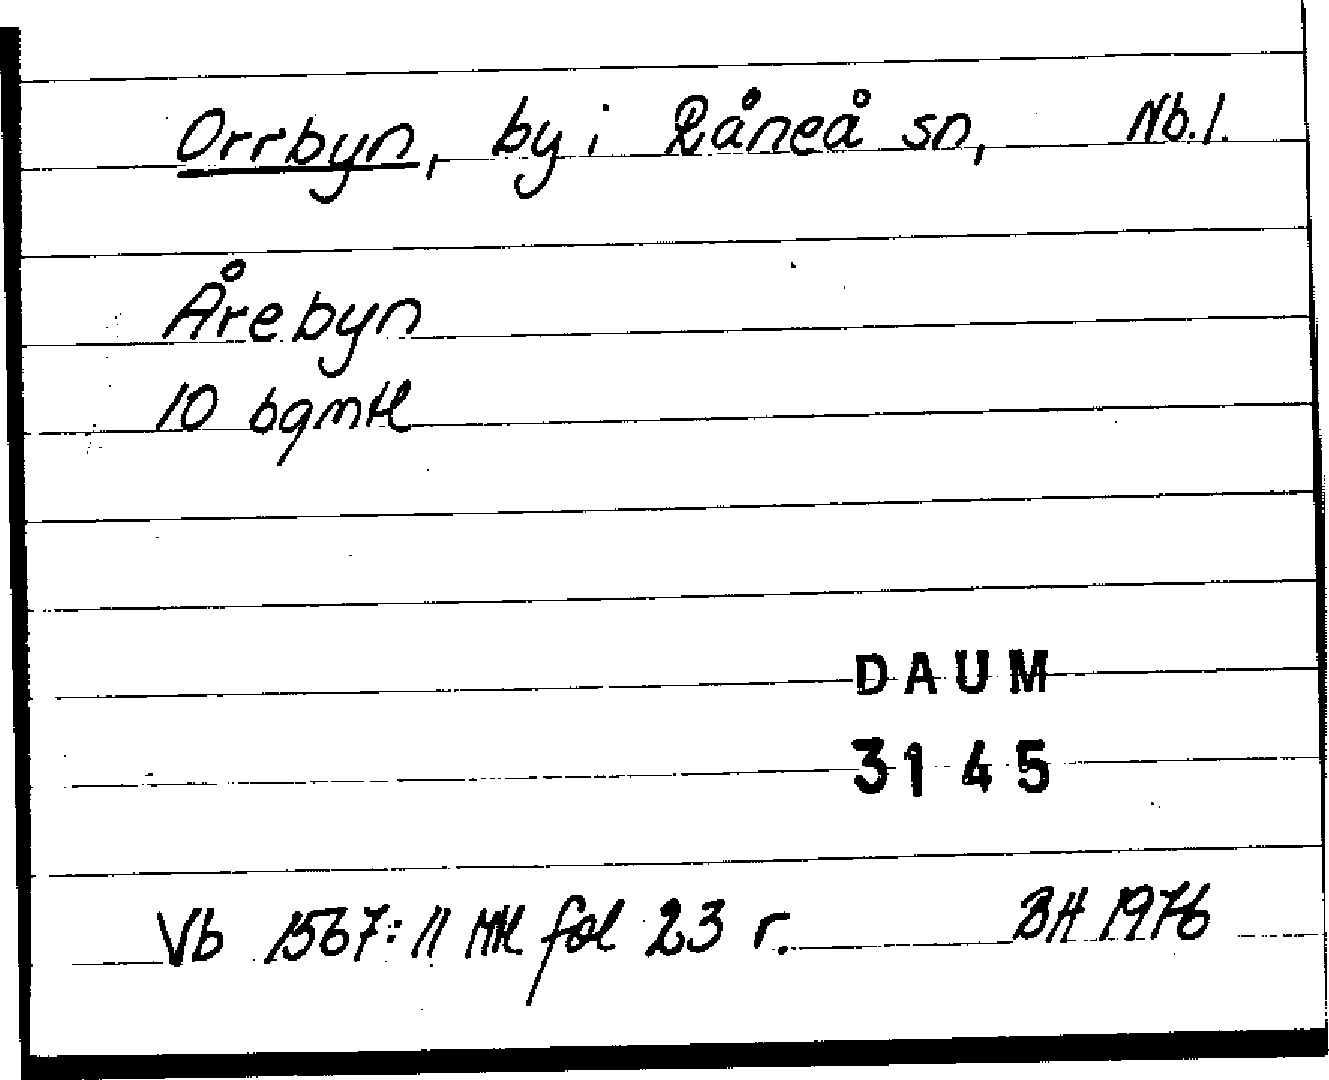 Orrbyn, by i Råneå sn, Nb.l.
Årebyn
10 bgmtl
DAUM
3145
Vb 1567:11 Mtl fol 23 r. BH 1976